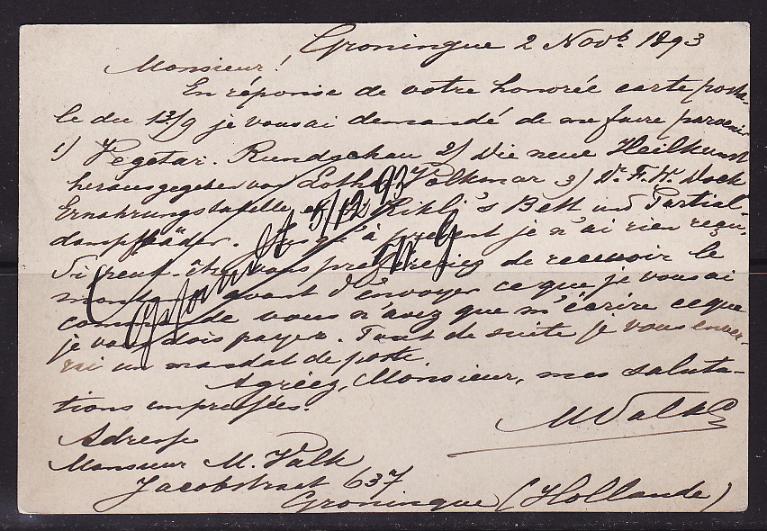 Groningue 2 Novb 1893
Monsieur!
En réponse de votre honorée carte posta-
le du 13/9 je vous ai demandé de me faire parvenir
1) Vegetar. Rundschau 2) Die neue Heilkunst
herausgegeben von Loth Volkmar 3) Dr. F. W. Dock
Ernahrungstafelle Rikli's Bett und Partial-
dampfbäder. Jusqu'à présent je n'ai rien reçu.
Si peut-être vous préfereriez de recevoir le
avant d'envoyer ce que je vous ai
de vous n'avez que m'écrire ce que
je vous dois payer. Tout de suite je vous enver-
rai un mandat de poste
Agréez, Monsieur, mes saluta-
tions empressées.
M Valk
Adresse
Monsieur M. Valk
Jacobstraat 637
Groningue (Hollande)
5/12 92